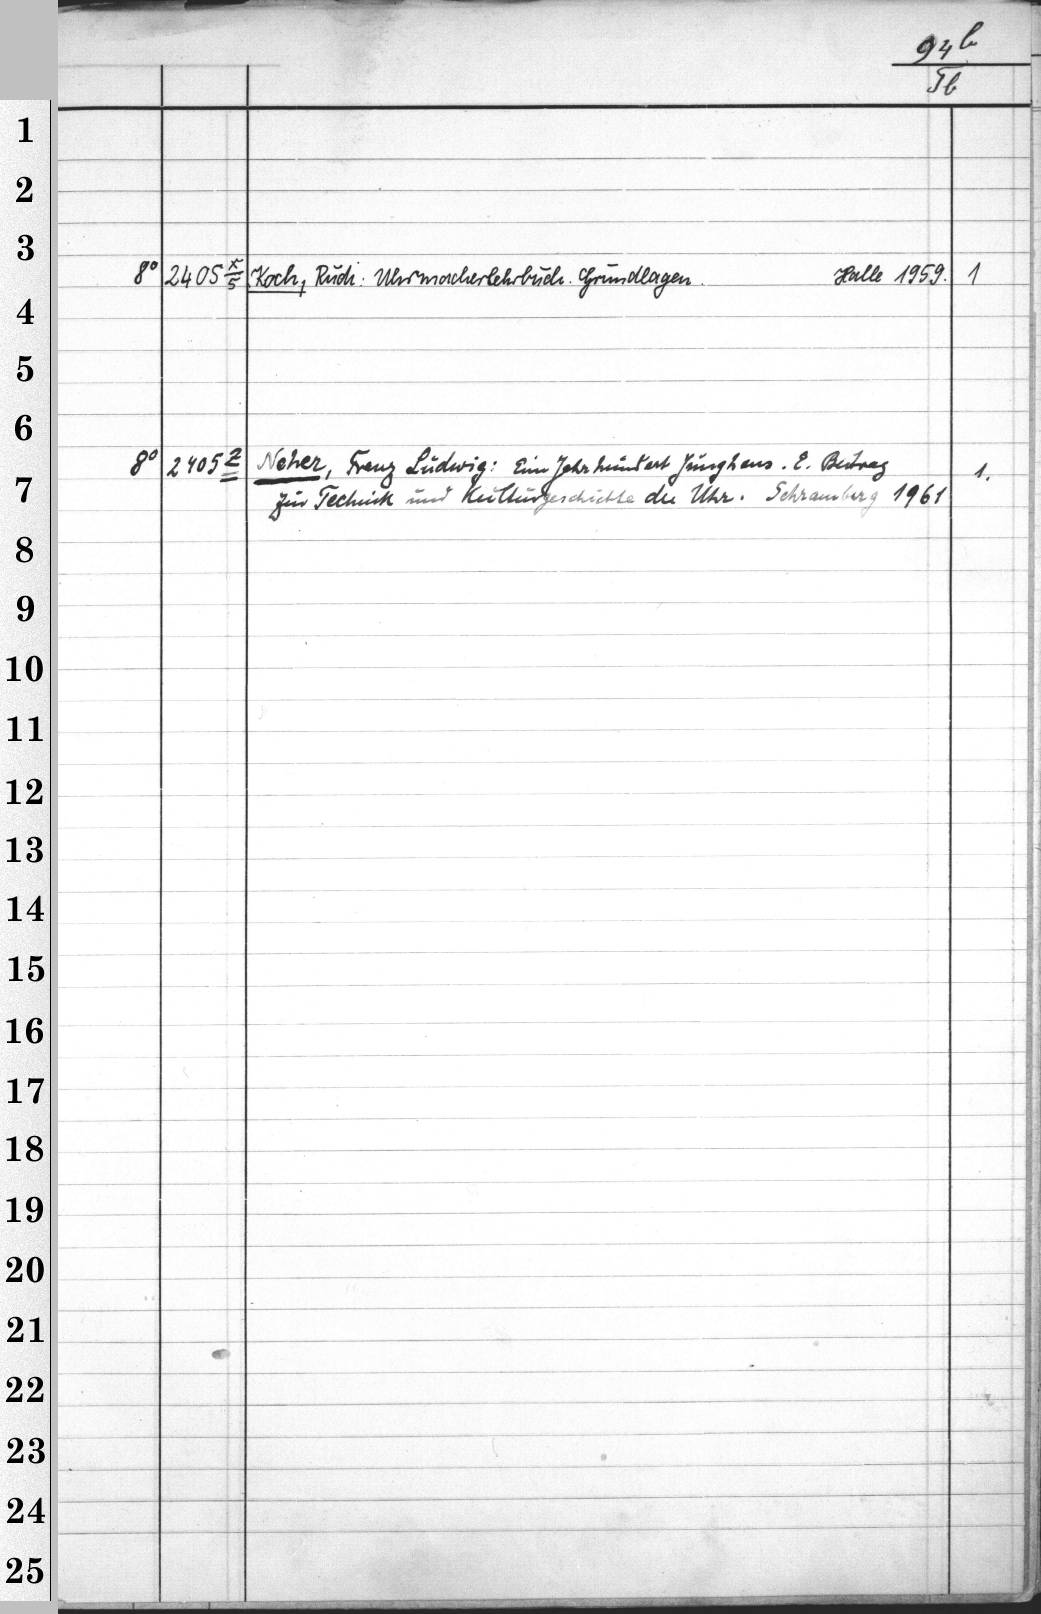 94b
Tb
1
2
3
8° 2405 x/5 Koch, Rudi: Uhrmacherlehrbuch. Grundlagen. Halle 1959. 1
4
5
6
8° 2405 z Neher, Franz Ludwig: Ein Jahrhundert Junghans. E. Beitrag 1.
7
zur Technik und Kulturgeschichte der Uhr. Schramberg 1961
8
9
10
11
12
13
14
15
16
17
18
19
20
21
22
23
24
25